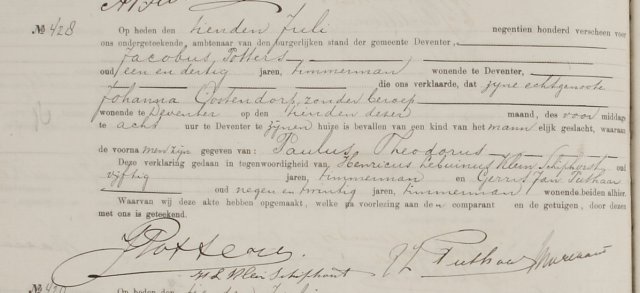 № 428 Op heden den tienden Juli negentien honderd verscheen voor
ons ondergeteekende, ambtenaar van den burgerlijken stand der gemeente Deventer,
Jacobus Potters
oud een en dertig jaren, timmerman wonende te Deventer,
die ons verklaarde, dat zijne echtgenoote
Johanna Oostendorp, zonder beroep
wonende te Deventer op den tienden dezer maand, des voor middags
te acht uur te Deventer te zijnen huize is bevallen van een kind van het mannelijk geslacht, waaraan
de voornamen zijn gegeven van: Paulus Theodorus
Deze verklaring gedaan in tegenwoordigheid van Henricus Lebuinus Klein Schiphorst oud
vijftig jaren, timmerman en Gerrit Jan Puthaar
oud negen en twintig jaren, timmerman wonende beiden alhier.
Waarvan wij deze akte hebben opgemaakt, welke na voorlezing aan den comparant en de getuigen, door dezen
met ons is geteekend.
J Potters
H L Klein Schiphorst
Puthaar
Op heden den